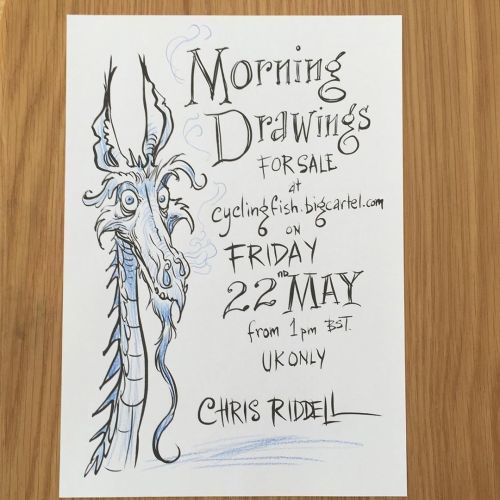 Morning
Drawings
FOR SALE
at
cyclingfish.bigcartel.com
ON
FRIDAY
22nd MAY
from 1pm BST.
UK ONLY
CHRIS RIDDELL